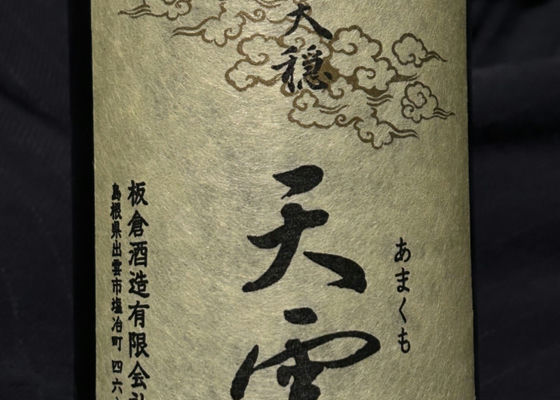 天穏
天雲
あまくも
板倉酒造有限会社
島根県出雲市塩冶町四六